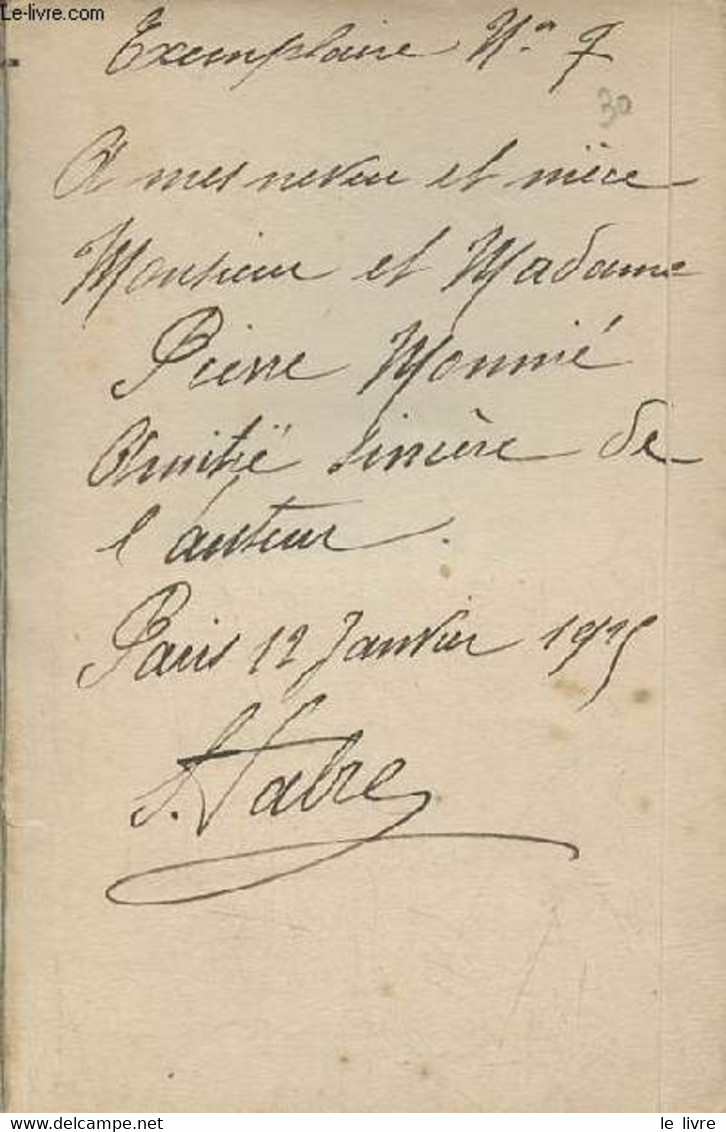 Le-livre.com
Exemplaire No 7
30
A mes neveu et nièce
Monsieur et Madame
Pierre Monnié
Amitié sincère de
l'auteur.
Paris 12 Janvier 1925
S. Fabre
www.delcampe.net
le livre